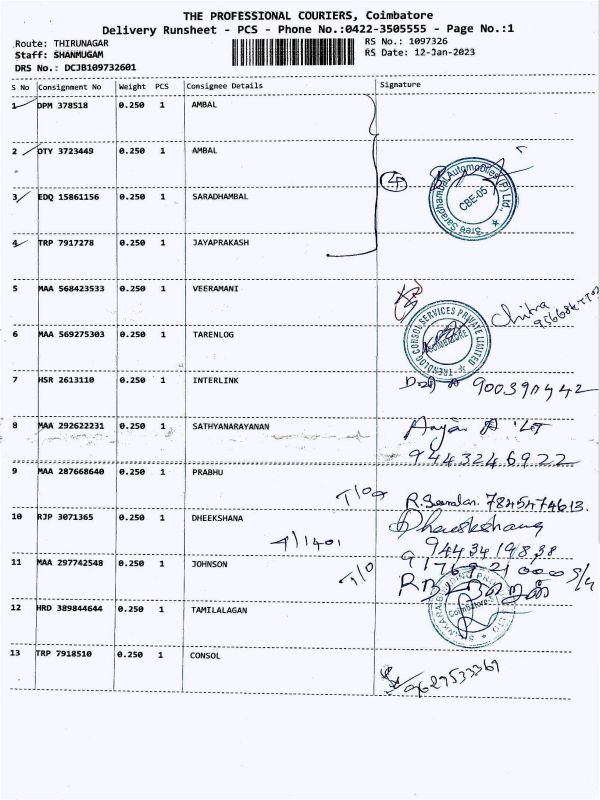 THE PROFESSIONAL COURIERS, Coimbatore
Delivery Runsheet - PCS - Phone No.:0422-3505555 - Page No.:1
Route: THIRUNAGAR
RS No.: 1097326
Staff: SHANMUGAM
RS Date: 12-Jan-2023
DRS No.: DCJB109732601
S No Consignment No Weight PCS Consignee Details Signature
1 DPM 378518 0.250 1 AMBAL
2 OTY 3723449 0.250 1 AMBAL
Sree Saradhambal Automobiles (P) Ltd.,
CBE-05
3 EDQ 15861156 0.250 1 SARADHAMBAL
4 TRP 7917278 0.250 1 JAYAPRAKASH
5 MAA 568423533 0.250 1 VEERAMANI
Chitra
TRENOLOG CONSOL SERVICES PRIVATE LIMITED
COIMBATORE
6 MAA 569275303 0.250 1 TARENLOG
7 HSR 2613110 0.250 1 INTERLINK
8 MAA 292622231 0.250 1 SATHYANARAYANAN
9443246922
9 MAA 287668640 0.250 1 PRABHU
7845474613.
10 RJP 3071365 0.250 1 DHEEKSHANA
Dheekshana
9443419838
11 MAA 297742548 0.250 1 JOHNSON
12 HRD 389844644 0.250 1 TAMILALAGAN
Coimbatore
13 TRP 7918510 0.250 1 CONSOL
9629533369